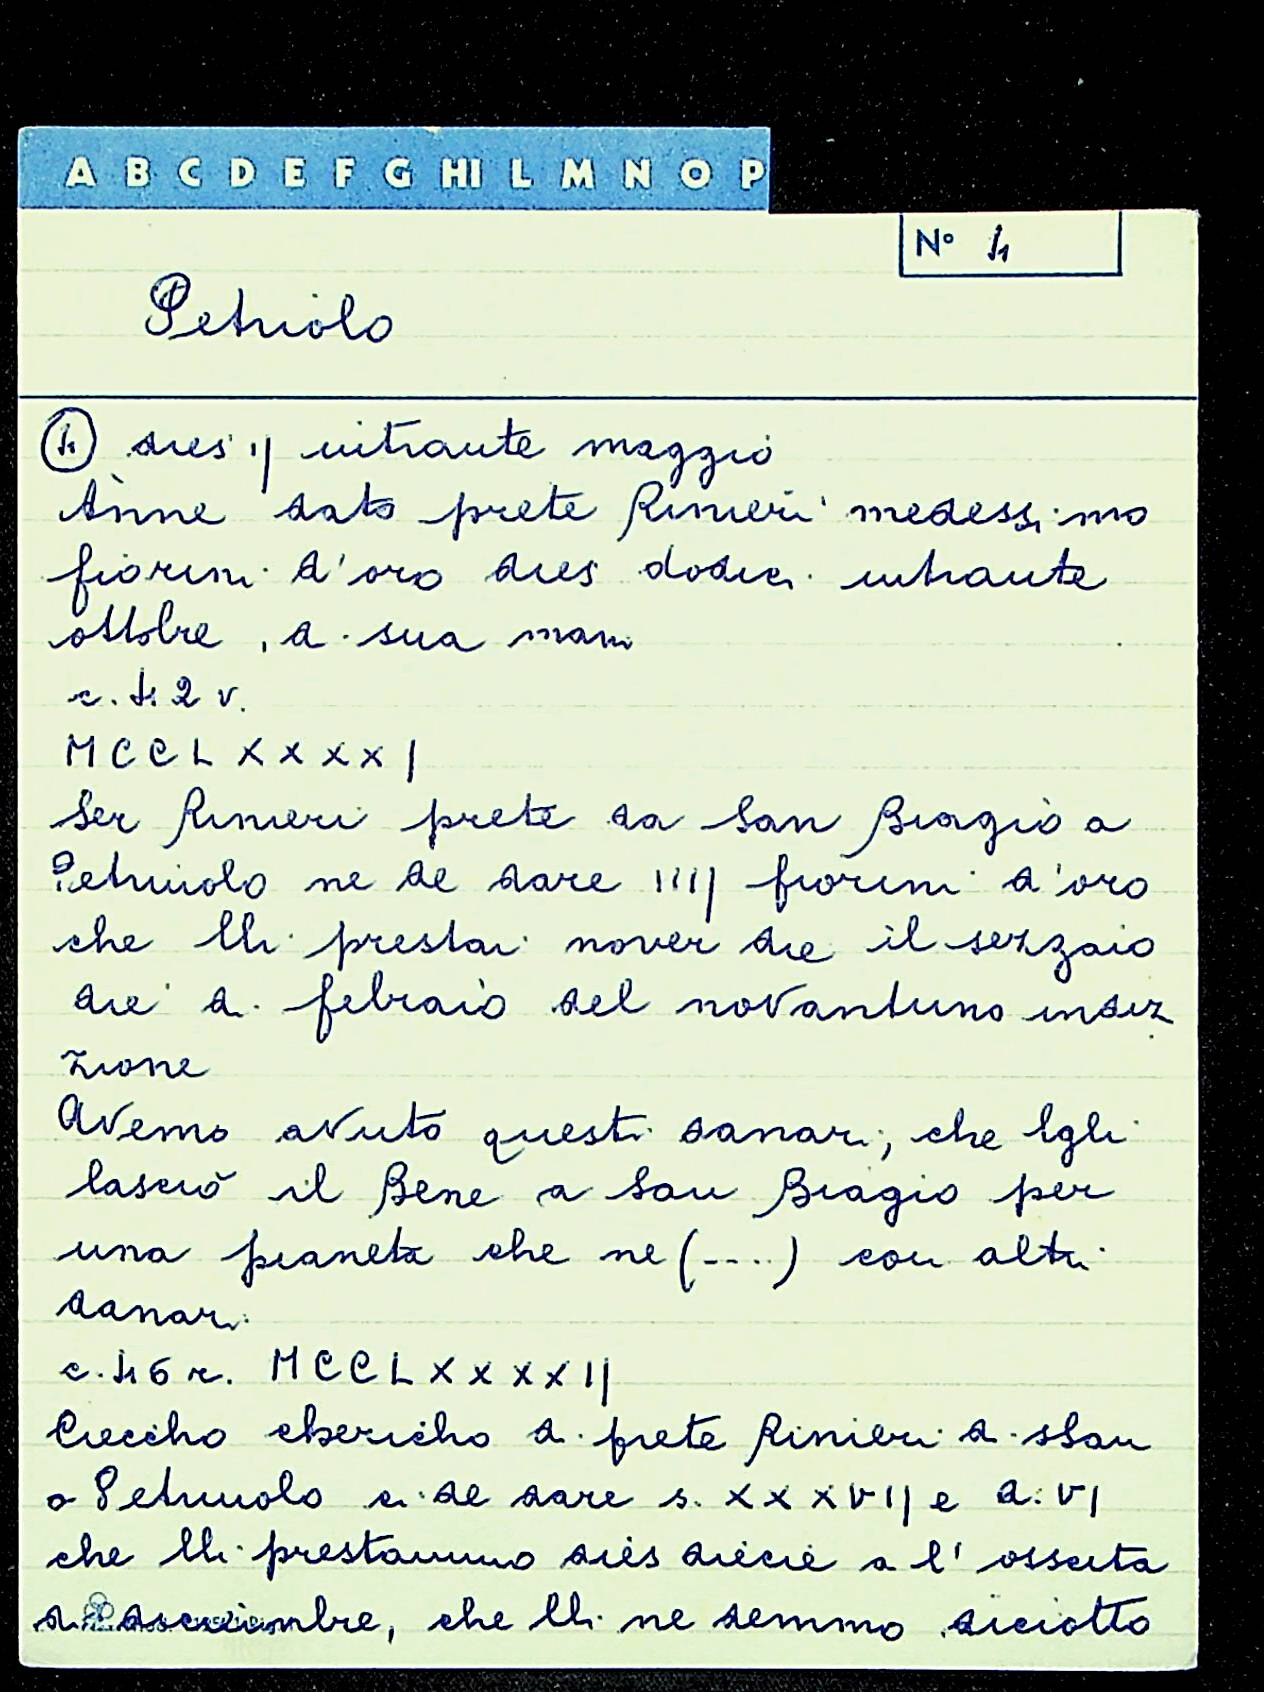 A B C D E F G HI L M N O P
N° 1
Petriolo
(1) dies ij intrante maggio
Ànne dato prete Rinieri medessimo
fiorini d'oro dies dodici intrante
ottobre, di sua mani
c. 12 v.
MCCLXXXXI
Ser Rinieri prete da San Biagio a
Petriuolo ne de dare IIIJ fiorini d'oro
che lli prestai nover die il sezzaio
die di febraio del novantuno indiz
zione
Avemo avuto questi danari, che lgli
lasciò il Bene a San Biagio per
una pianeta che ne (....) con altri
danari.
c. 16 r. MCCLXXXXIJ
Ciecciho chericho di prete Rinieri di sSan
a Petriuolo ci de dare s. XXXVIJ e d. VJ
che lli prestammo dies diecie a l'osscita
di dicienbre, che lli ne demmo diciotto